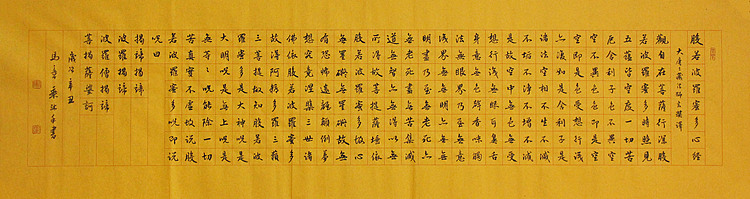 般若波羅蜜多心經
大唐三藏法師玄奘譯
觀自在菩薩行深般
若波羅蜜多時照見
五蘊皆空度一切苦
厄舍利子色不異空
空不異色色即是空
空即是色受想行識
亦復如是舍利子是
諸法空相不生不滅
不垢不淨不增不減
是故空中無色無受
想行識無眼耳鼻舌
身意無色聲香味觸
法無眼界乃至無意
識界無無明亦無無
明盡乃至無老死亦
無老死盡無苦集滅
道無智亦無得以無
所得故菩提薩埵依
般若波羅蜜多故心
無罣礙無罣礙故無
有恐怖遠離顛倒夢
想究竟涅槃三世諸
佛依般若波羅蜜多
故得阿耨多羅三藐
三菩提故知般若波
羅蜜多是大神咒是
大明咒是無上咒是
無等々咒能除一切
苦真實不虛故說般
若波羅蜜多咒即說
咒曰
揭諦揭諦
波羅揭諦
波羅僧揭諦
菩提薩婆訶
歲次辛丑
書